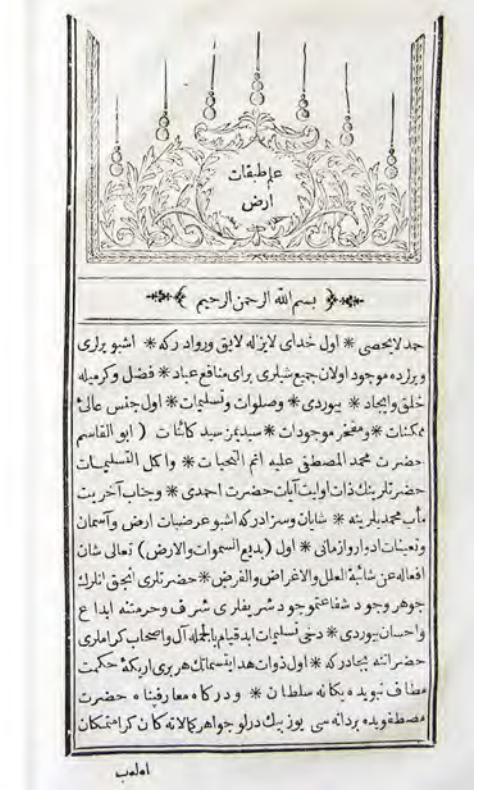 علم طبقات
ارض
بسم الله الرحمن الرحيم
حمد لايحصى * اول خداى لايزاله لايق وروادركه * اشبو يرلرى
ويرلرده موجود اولان جميع شيلرى براى منافع عباد * فضل وكرميله
خلق وايجاد * بيوردى * وصلوات وتسليمات * اول جنس عالئ
ممكنات * ومفخر موجودات * سيديمز سيد كائنات ( ابو القاسم
حضرت محمد المصطفى عليه اتم التحيات * واكمل التسليمات
حضرتلرينك ذات اوليت آيات حضرت احمدى * وجناب آخريت
مأب محمديلرينه * شايان وسزادركه اشبو عرضيات ارض وآسمان
وتعينات ادوار وازمانى * اول (بديع السموات والارض) تعالى شان
افعاله عن شائبة العلل والاغراض والفرض * حضرتلرى انجق انلرك
جوهر وجود شفاعتموجود شريفلرى شرف وحرمتنه ابداع
واحسان بيوردى * دخى تسليمات ابد قيام بالجمله آل واصحاب كراملرى
حضراتنه بجادركه * اول ذوات هدايتسماتك هر برى اريكهٔ حكمت
مطاف نبويده يكانه سلطان * ودركاه معارفپناه حضرت
مصطفويده بردانه سى يوز بيك درلو جواهر كمالاته كان كرامتمكان
اولوب